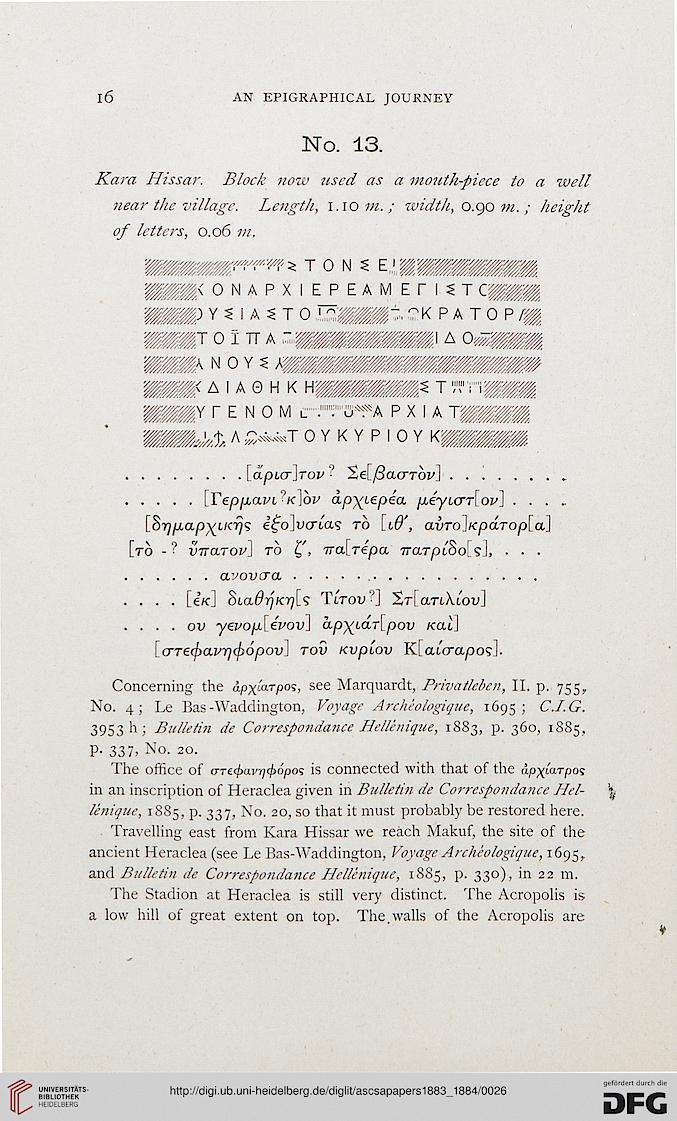 16 AN EPIGRAPHICAL JOURNEY
No. 13.
Kara Hissar. Block now used as a mouth-piece to a well
near the village. Length, 1.10 m.; width, 0.90 m.; height
of letters, 0.06 m.
Σ Τ Ο Ν Σ Ε
Ο Ν Α Ρ Χ Ι Ε Ρ Ε Α Μ Ε Γ Ι Σ Τ
Υ Σ Ι Α Σ Τ Ο Κ Ρ Α Τ Ο Ρ
Τ Ο Ι Π Α Ι Δ Ο
Ν Ο Υ Σ Α
Δ Ι Α Θ Η Κ Η Σ Τ
Υ Γ Ε Ν Ο Μ Α Ρ Χ Ι Α Τ
Λ Τ Ο Υ Κ Υ Ρ Ι Ο Υ Κ
. . . . . . . . [ἄρισ]τον? Σε[βαστὸν] . . . . . . .
. . . . . [Γερμανι?κ]ὸν ἀρχιερέα μέγιστ[ον] . . . .
[δημαρχικῆς ἐξο]υσίας τὸ [ιθ′, αὐτο]κράτορ[α]
[τὸ -? ὕπατον] τὸ ζ′, πα[τέρα πατρίδο[ς], . . .
. . . . . . ανουσα . . . . . . . . . . . . . . . .
. . . . [ἐκ] διαθήκη[ς Τίτου?] Στ[ατιλίου]
. . . . ου γενομ[ένου] ἀρχιάτ[ρου καὶ]
[στεφανηφόρου] τοῦ κυρίου Κ[αίσαρος].
Concerning the ἀρχίατρος, see Marquardt, Privatleben, II. p. 755,
No. 4; Le Bas-Waddington, Voyage Archéologique, 1695; C.I.G.
3953 h; Bulletin de Correspondance Hellénique, 1883, p. 360, 1885,
p. 337, No. 20.
The office of στεφανηφόρος is connected with that of the ἀρχίατρος
in an inscription of Heraclea given in Bulletin de Correspondance Hel-
lénique, 1885, p. 337, No. 20, so that it must probably be restored here.
Travelling east from Kara Hissar we reach Makuf, the site of the
ancient Heraclea (see Le Bas-Waddington, Voyage Archéologique, 1695,
and Bulletin de Correspondance Hellénique, 1885, p. 330), in 22 m.
The Stadion at Heraclea is still very distinct. The Acropolis is
a low hill of great extent on top. The walls of the Acropolis are
UNIVERSITÄTS-
BIBLIOTHEK
HEIDELBERG
http://digi.ub.uni-heidelberg.de/diglit/ascsapapers1883_1884/0026
gefördert durch die
DFG